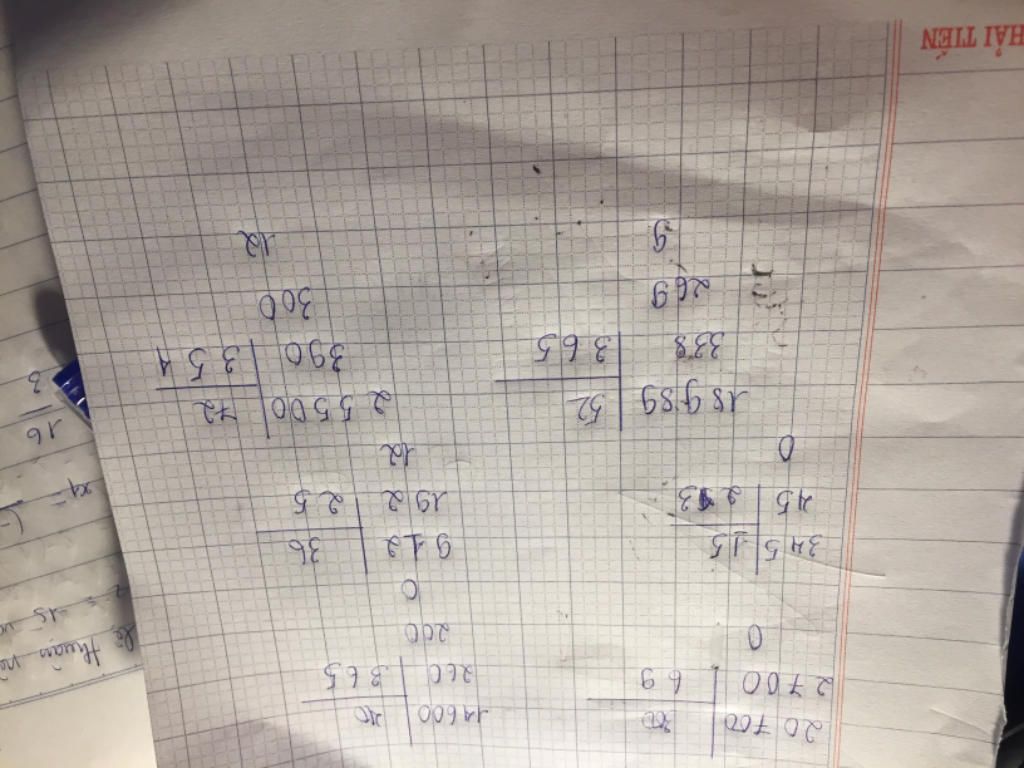 20700 300
2700 69
0
14600 40
260 365
200
0
345 15
45 23
0
912 36
192 25
12
18989 52
338 365
269
9
25500 72
390 354
300
12
lệ thuận
= -15
x1 =
16
3
HẢI TIẾN